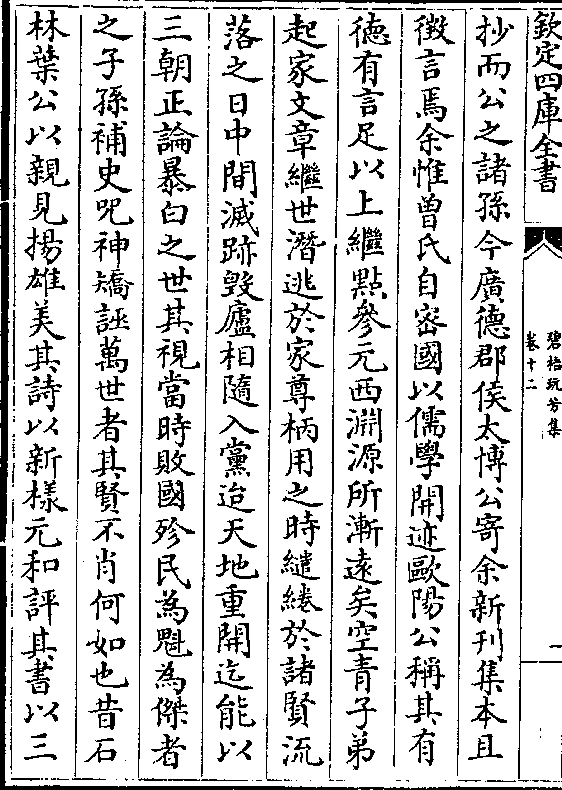 欽定四庫全書
碧梧玩芳集
卷十二
一
抄而公之諸孫今廣德郡侯太博公寄余新刊集本且
徴言焉余惟曾氏自密國以儒學開迹歐陽公稱其有
徳有言足以上繼點參元西淵源所漸逺矣空青子弟
起家文章繼世潛逃於家尊柄用之時繾綣於諸賢流
落之日中間滅跡毀廬相隨入黨迨天地重開迄能以
三朝正論暴白之世其視當時敗國殄民為魁為傑者
之子孫補史咒神矯誣萬世者其賢不肖何如也昔石
林葉公以親見揚雄美其詩以新樣元和評其書以三